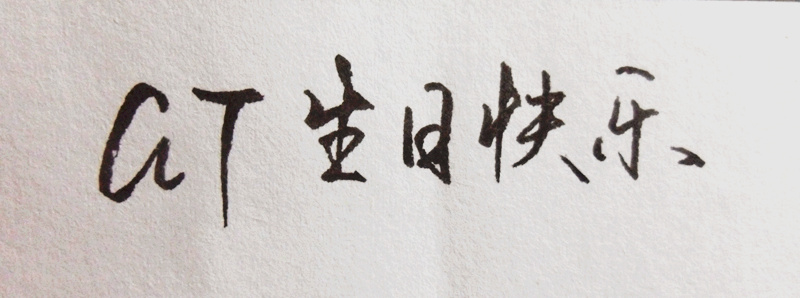 GT 生日快乐